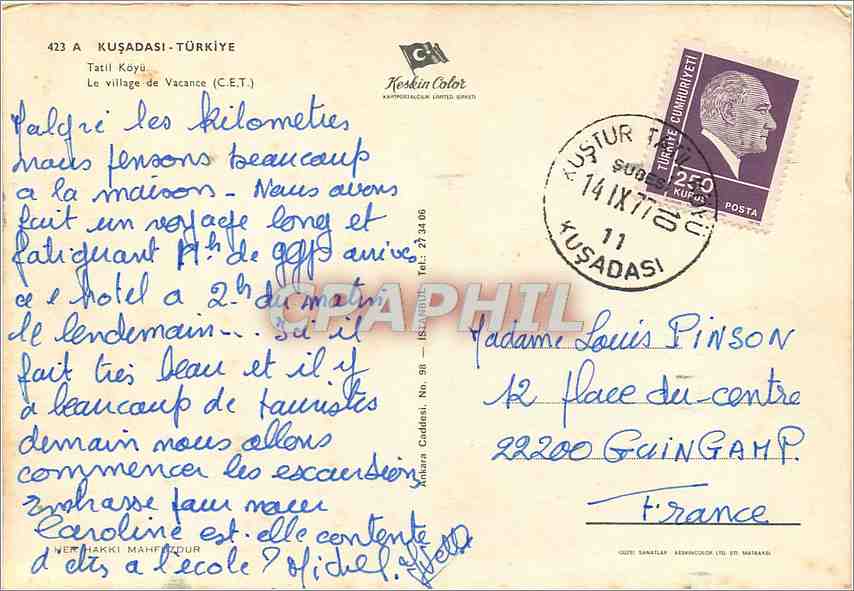 423 A KUŞADASI - TÜRKİYE
Tatil Köyü
Le village de Vacance (C.E.T.)
Keskin Color
KARTPOSTALCILIK LIMITED ŞIRKETI
TÜRKİYE CUMHURİYETİ
250
KURUŞ
POSTA
KUŞTUR TATİL KÖYÜ
ŞUBESİ
14 IX 77 10
11
KUŞADASI
Malgré les kilometres
nous pensons beaucoup
a la maison - Nous avons
fait un voyage long et
fatiguant de arrivés
a hotel a 2h du matin
le lendemain... Ici il
fait très beau et il y
a beaucoup de touristes
demain nous allons
commencer les excursions
Embrasse pour nous
Caroline est-elle contente
d'etre a l'école? Michel.
HER HAKKI MAHFUZDUR
Ankara Caddesi. No. 98 — İSTANBUL Tel.: 27 34 06
CPAPHIL
Madame Louis PINSON
12 place du centre
22200 GUINGAMP.
France
GÜZEL SANATLAR KESKINCOLOR LTD. ŞTI. MATBAASI